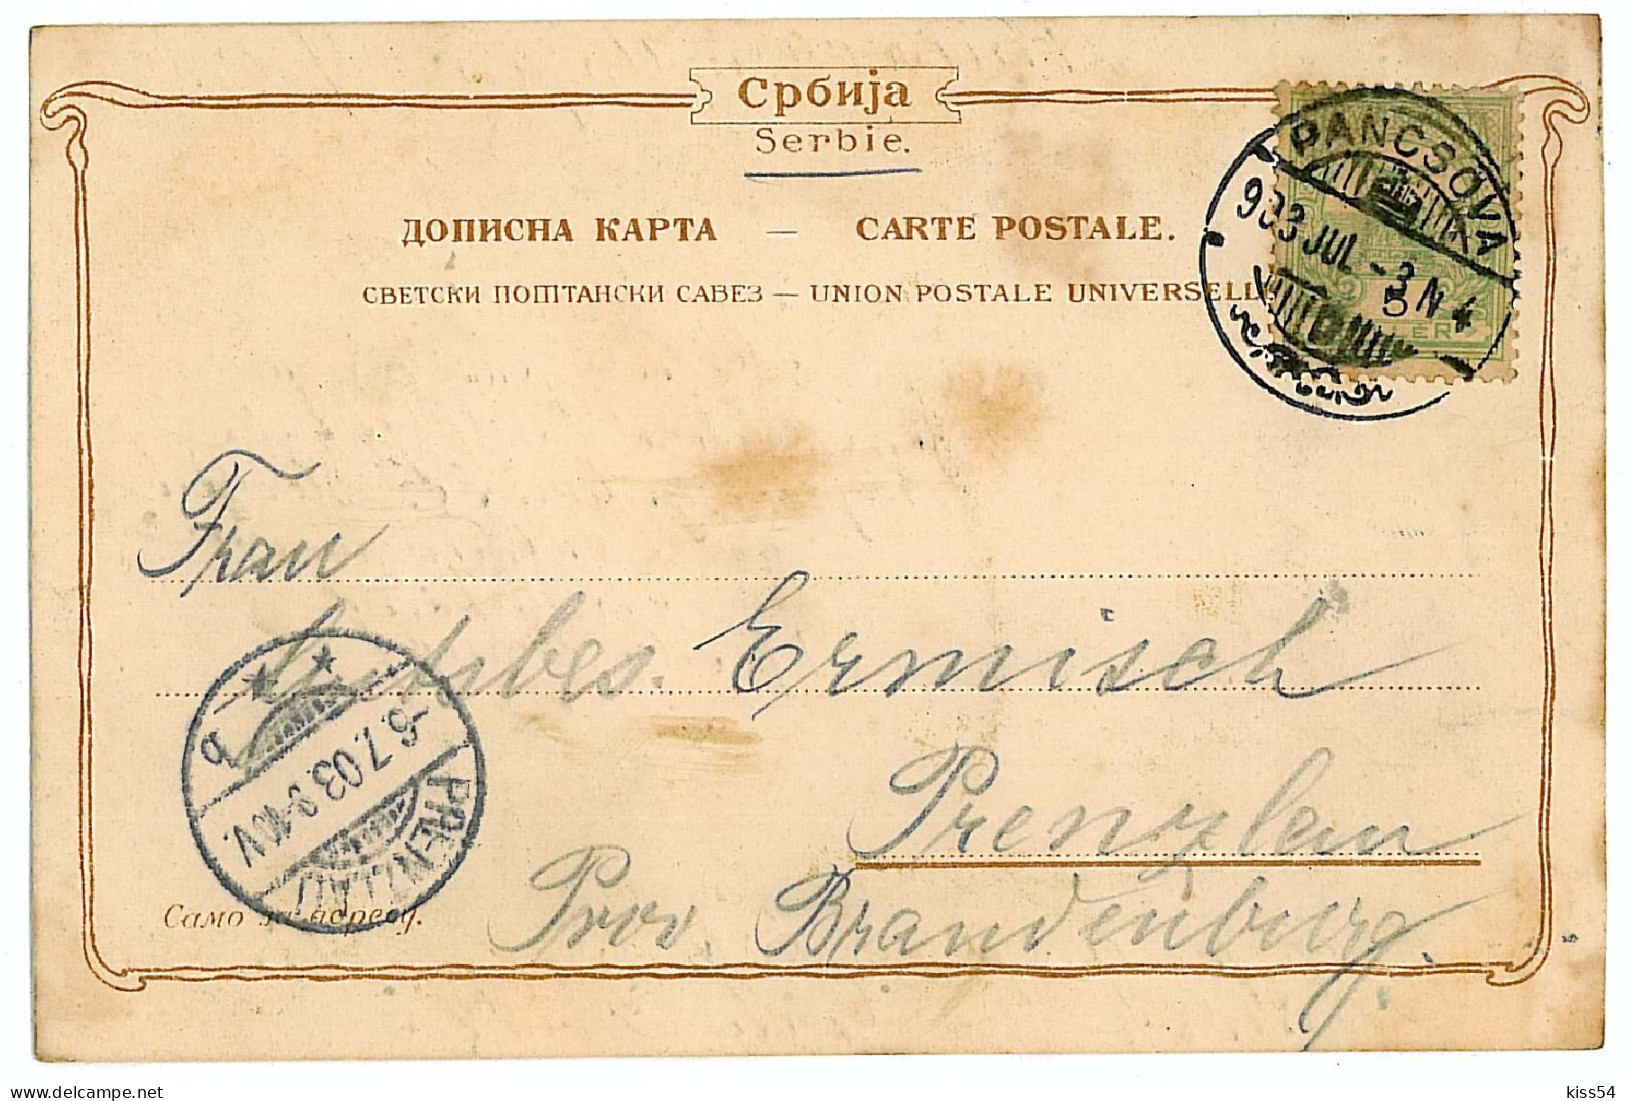 Србија
Serbie.
ДОПИСНА КАРТА — CARTE POSTALE.
СВЕТСКИ ПОШТАНСКИ САВЕЗ — UNION POSTALE UNIVERSELLE
PANCSOVA
903 JUL - 3 N 4
5
Frau
Ermisch
Prenzlau
Prov Brandenburg.
PRENZLAU
-6.7.03. 9-10V.
Само за адресу.
kiss54